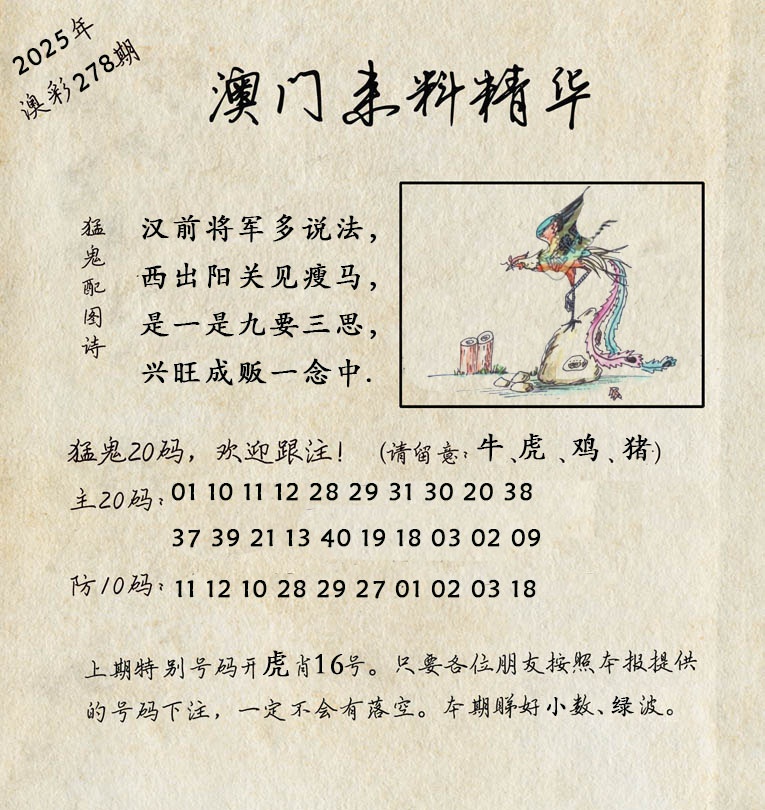 2025年
澳彩278期
澳门来料精华
猛鬼配图诗
汉前将军多说法，
西出阳关见瘦马，
是一是九要三思，
兴旺成贩一念中.
辰
猛鬼20码，欢迎跟注！（请留意：牛、虎、鸡、猪）
主20码：01 10 11 12 28 29 31 30 20 38
37 39 21 13 40 19 18 03 02 09
防10码：11 12 10 28 29 27 01 02 03 18
上期特别号码开虎肖16号。只要各位朋友按照本报提供
的号码下注，一定不会有落空。本期睇好小数、绿波。